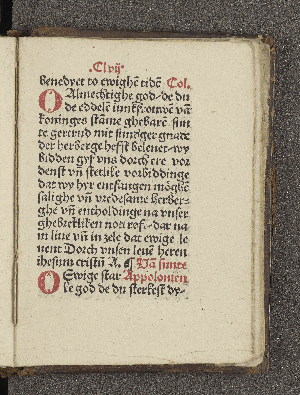 Clvij
benedyet to ewighē tidē Col.
O Almechtighe god de du
de eddelē iunkfrouwē vā
koninges stāme ghebarē sun
te gertrud mit sundger gnade
der herberge hefft belenet wy
bidden gyf vns dorch ere vor
denst vn̄ sketlike vorbiddinge
dat wy hyr entfangen mōghē
salighe vn̄ vredesame herber-
ghe vn̄ entholdinge na vnser
ghebreklikē not rof. dar na
in liue vn̄ in zele dat ewige le
uent Dorch vnsen leuē heren
ihesum cristū A. ¶ Vā sunte
O Ewige star Appolonien
ke god de du sterkest dy-